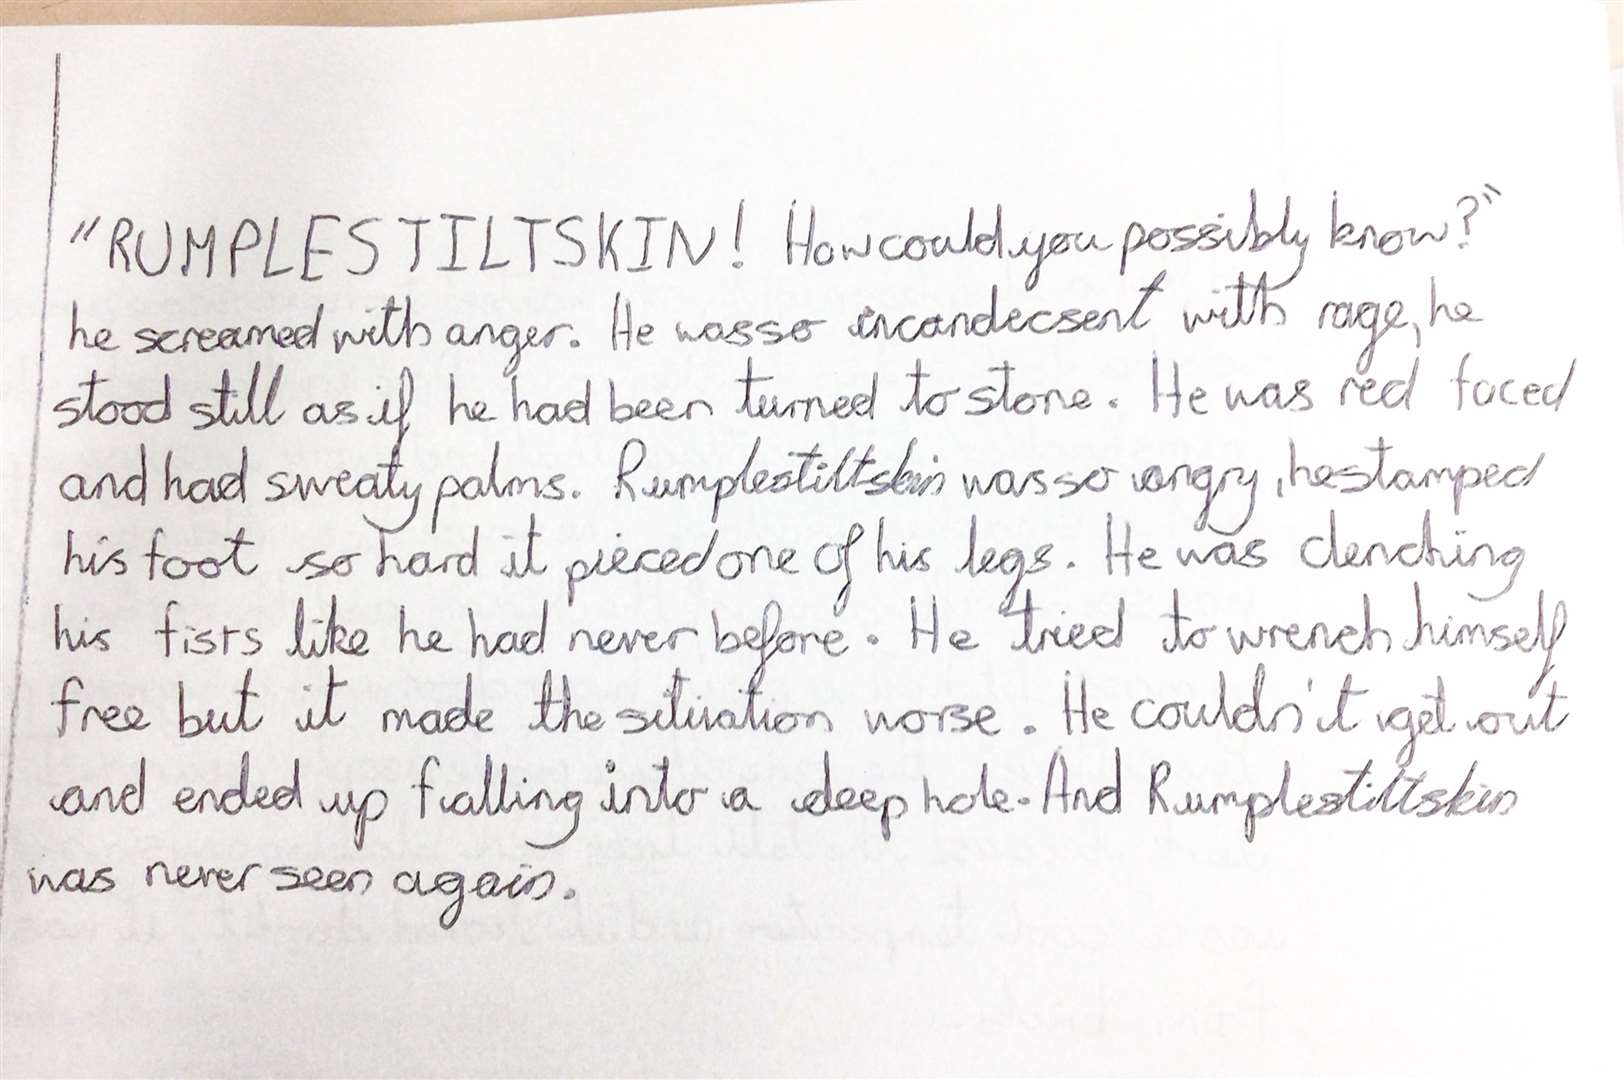 "RUMPLESTILTSKIN! How could you possibly know?"
he screamed with anger. He was so incandecsent with rage, he
stood still as if he had been turned to stone. He was red faced
and had sweaty palms. Rumplestiltskin was so angry, he stamped
his foot so hard it pieced one of his legs. He was clenching
his fists like he had never before. He tried to wrench himself
free but it made the situation worse. He couldn't get out
and ended up falling into a deep hole. And Rumplestiltskin
was never seen again.